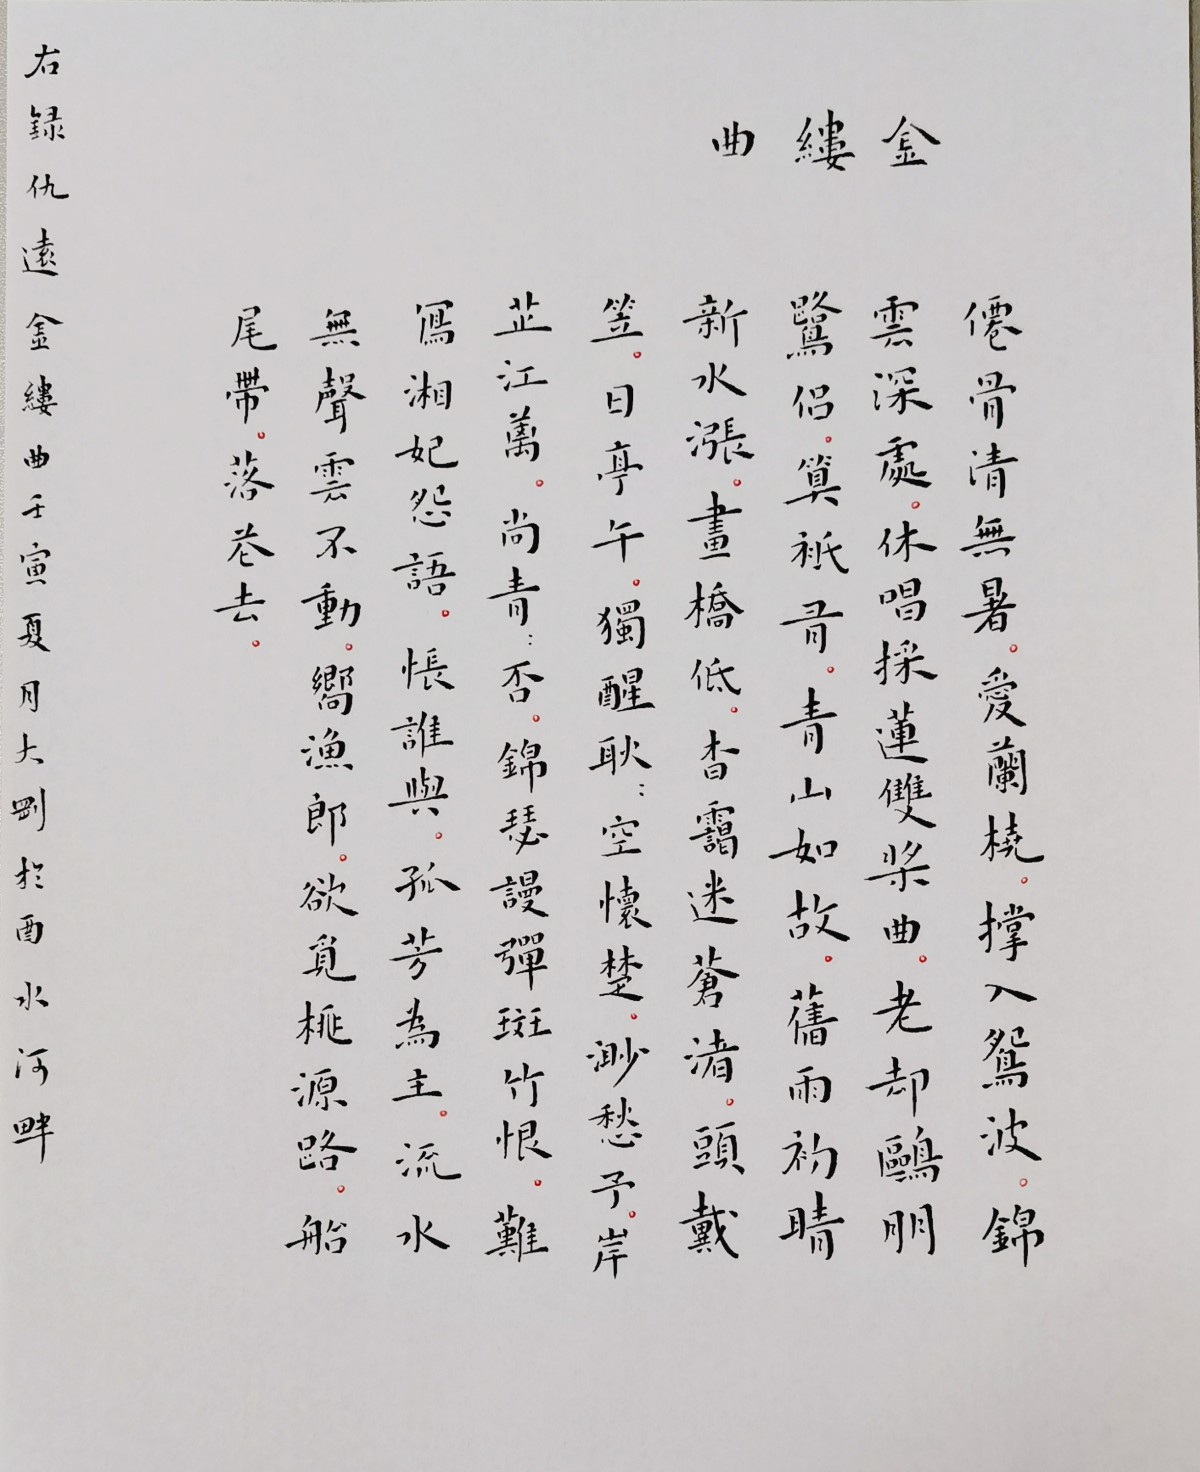 金縷曲
僊骨清無暑。愛蘭橈。撑入鴛波。錦
雲深處。休唱採蓮雙槳曲。老却鷗朋
鷺侣。算祇有。青山如故。舊雨初晴
新水漲。畫橋低。杳靄迷蒼渚。頭戴
笠。日亭午。獨醒耿:空懷楚。渺愁予。岸
芷江蓠。尚青:否。錦瑟謾彈斑竹恨。難
寫湘妃怨語。悵誰與。孤芳為主。流水
無聲雲不動。嚮漁郎。欲覓桃源路。船
尾帶。落花去。
右録仇遠金縷曲壬寅夏月大剛於酉水河畔